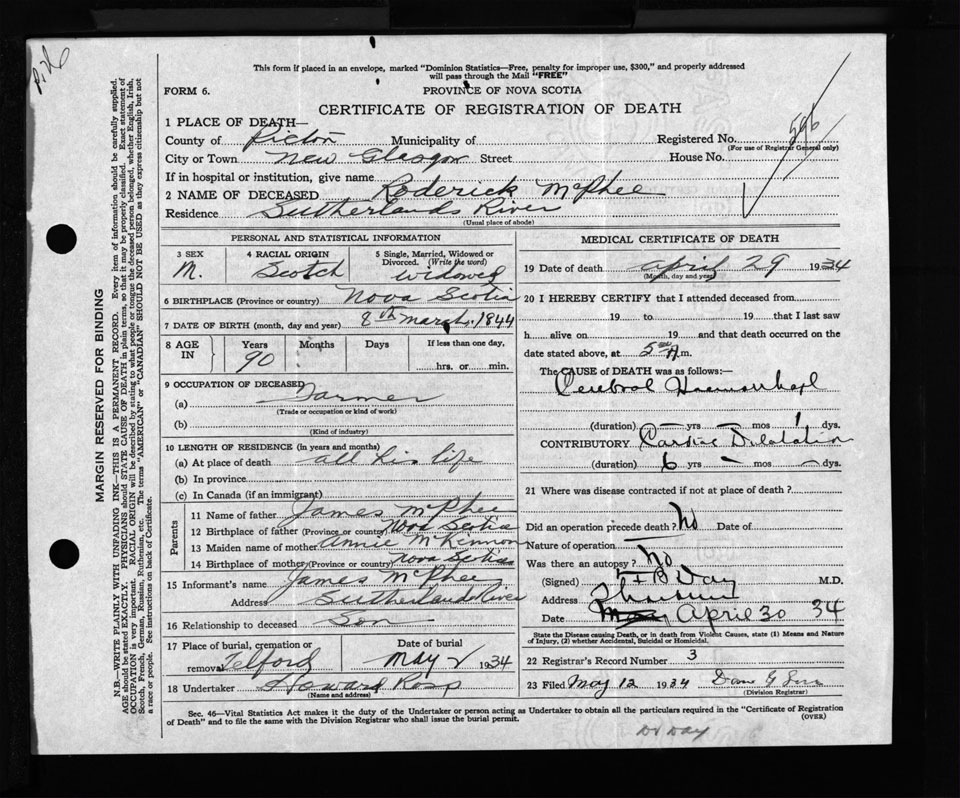 This form if placed in an envelope, marked "Dominion Statistics—Free, penalty for improper use, $300," and properly addressed
will pass through the Mail "FREE"
FORM 6.
PROVINCE OF NOVA SCOTIA
CERTIFICATE OF REGISTRATION OF DEATH
1 PLACE OF DEATH—
County of Pictou Municipality of Registered No. 596
(For use of Registrar General only)
City or Town New Glasgow Street House No.
If in hospital or institution, give name
2 NAME OF DECEASED Roderick McPhee
Residence Sutherlands River
(Usual place of abode)
PERSONAL AND STATISTICAL INFORMATION
3 SEX 4 RACIAL ORIGIN 5 Single, Married, Widowed or
Divorced. (Write the word)
M. Scotch widowed
6 BIRTHPLACE (Province or country) Nova Scotia
7 DATE OF BIRTH (month, day and year) 8th March 1844
8 AGE IN Years Months Days If less than one day,
90 hrs. or min.
9 OCCUPATION OF DECEASED
(a) Farmer
(Trade or occupation or kind of work)
(b)
(Kind of industry)
10 LENGTH OF RESIDENCE (in years and months)
(a) At place of death all his life
(b) In province
(c) In Canada (if an immigrant)
Parents
11 Name of father James McPhee
12 Birthplace of father (Province or country) Nova Scotia
13 Maiden name of mother Annie McKennon
14 Birthplace of mother (Province or country) Nova Scotia
15 Informant's name James McPhee
Address Sutherlands River
16 Relationship to deceased Son
17 Place of burial, cremation or Date of burial
removal Telford May 2 1934
18 Undertaker Howard Ross
(Name and address)
MEDICAL CERTIFICATE OF DEATH
19 Date of death April 29 1934
(Month, day and year)
20 I HEREBY CERTIFY that I attended deceased from
19 to 19 that I last saw
h alive on 19 and that death occurred on the
date stated above, at 5 A.m.
The CAUSE of DEATH was as follows:—
Cerebral Haemorrhage
(duration) yrs mos 1 dys.
CONTRIBUTORY Cardiac Dilatation
(duration) 6 yrs – mos – dys.
21 Where was disease contracted if not at place of death?
Did an operation precede death? No Date of
Nature of operation
Was there an autopsy? No
(Signed) B Day M.D.
Address
Date April 30 34
State the Disease causing Death, or in death from Violent Causes, state (1) Means and Nature
of Injury, (2) whether Accidental, Suicidal or Homicidal.
22 Registrar's Record Number 3
23 Filed May 12 1934
(Division Registrar)
Sec. 46—Vital Statistics Act makes it the duty of the Undertaker or person acting as Undertaker to obtain all the particulars required in the "Certificate of Registration
of Death" and to file the same with the Division Registrar who shall issue the burial permit. (OVER)
Dr Day
MARGIN RESERVED FOR BINDING
N.B.—WRITE PLAINLY WITH UNFADING INK—THIS IS A PERMANENT RECORD. Every item of information should be carefully supplied.
AGE should be stated EXACTLY. PHYSICIANS should STATE CAUSE OF DEATH in plain terms, so that it may be properly classified. Exact statement of
OCCUPATION is very important. RACIAL ORIGIN will be described by stating to what people or tongue the deceased person belonged, whether English, Irish,
Scotch, French, German, Russian, Ruthenian, etc. The terms "AMERICAN" or "CANADIAN" SHOULD NOT BE USED as they express citizenship but not
a race or people. See instructions on back of Certificate.